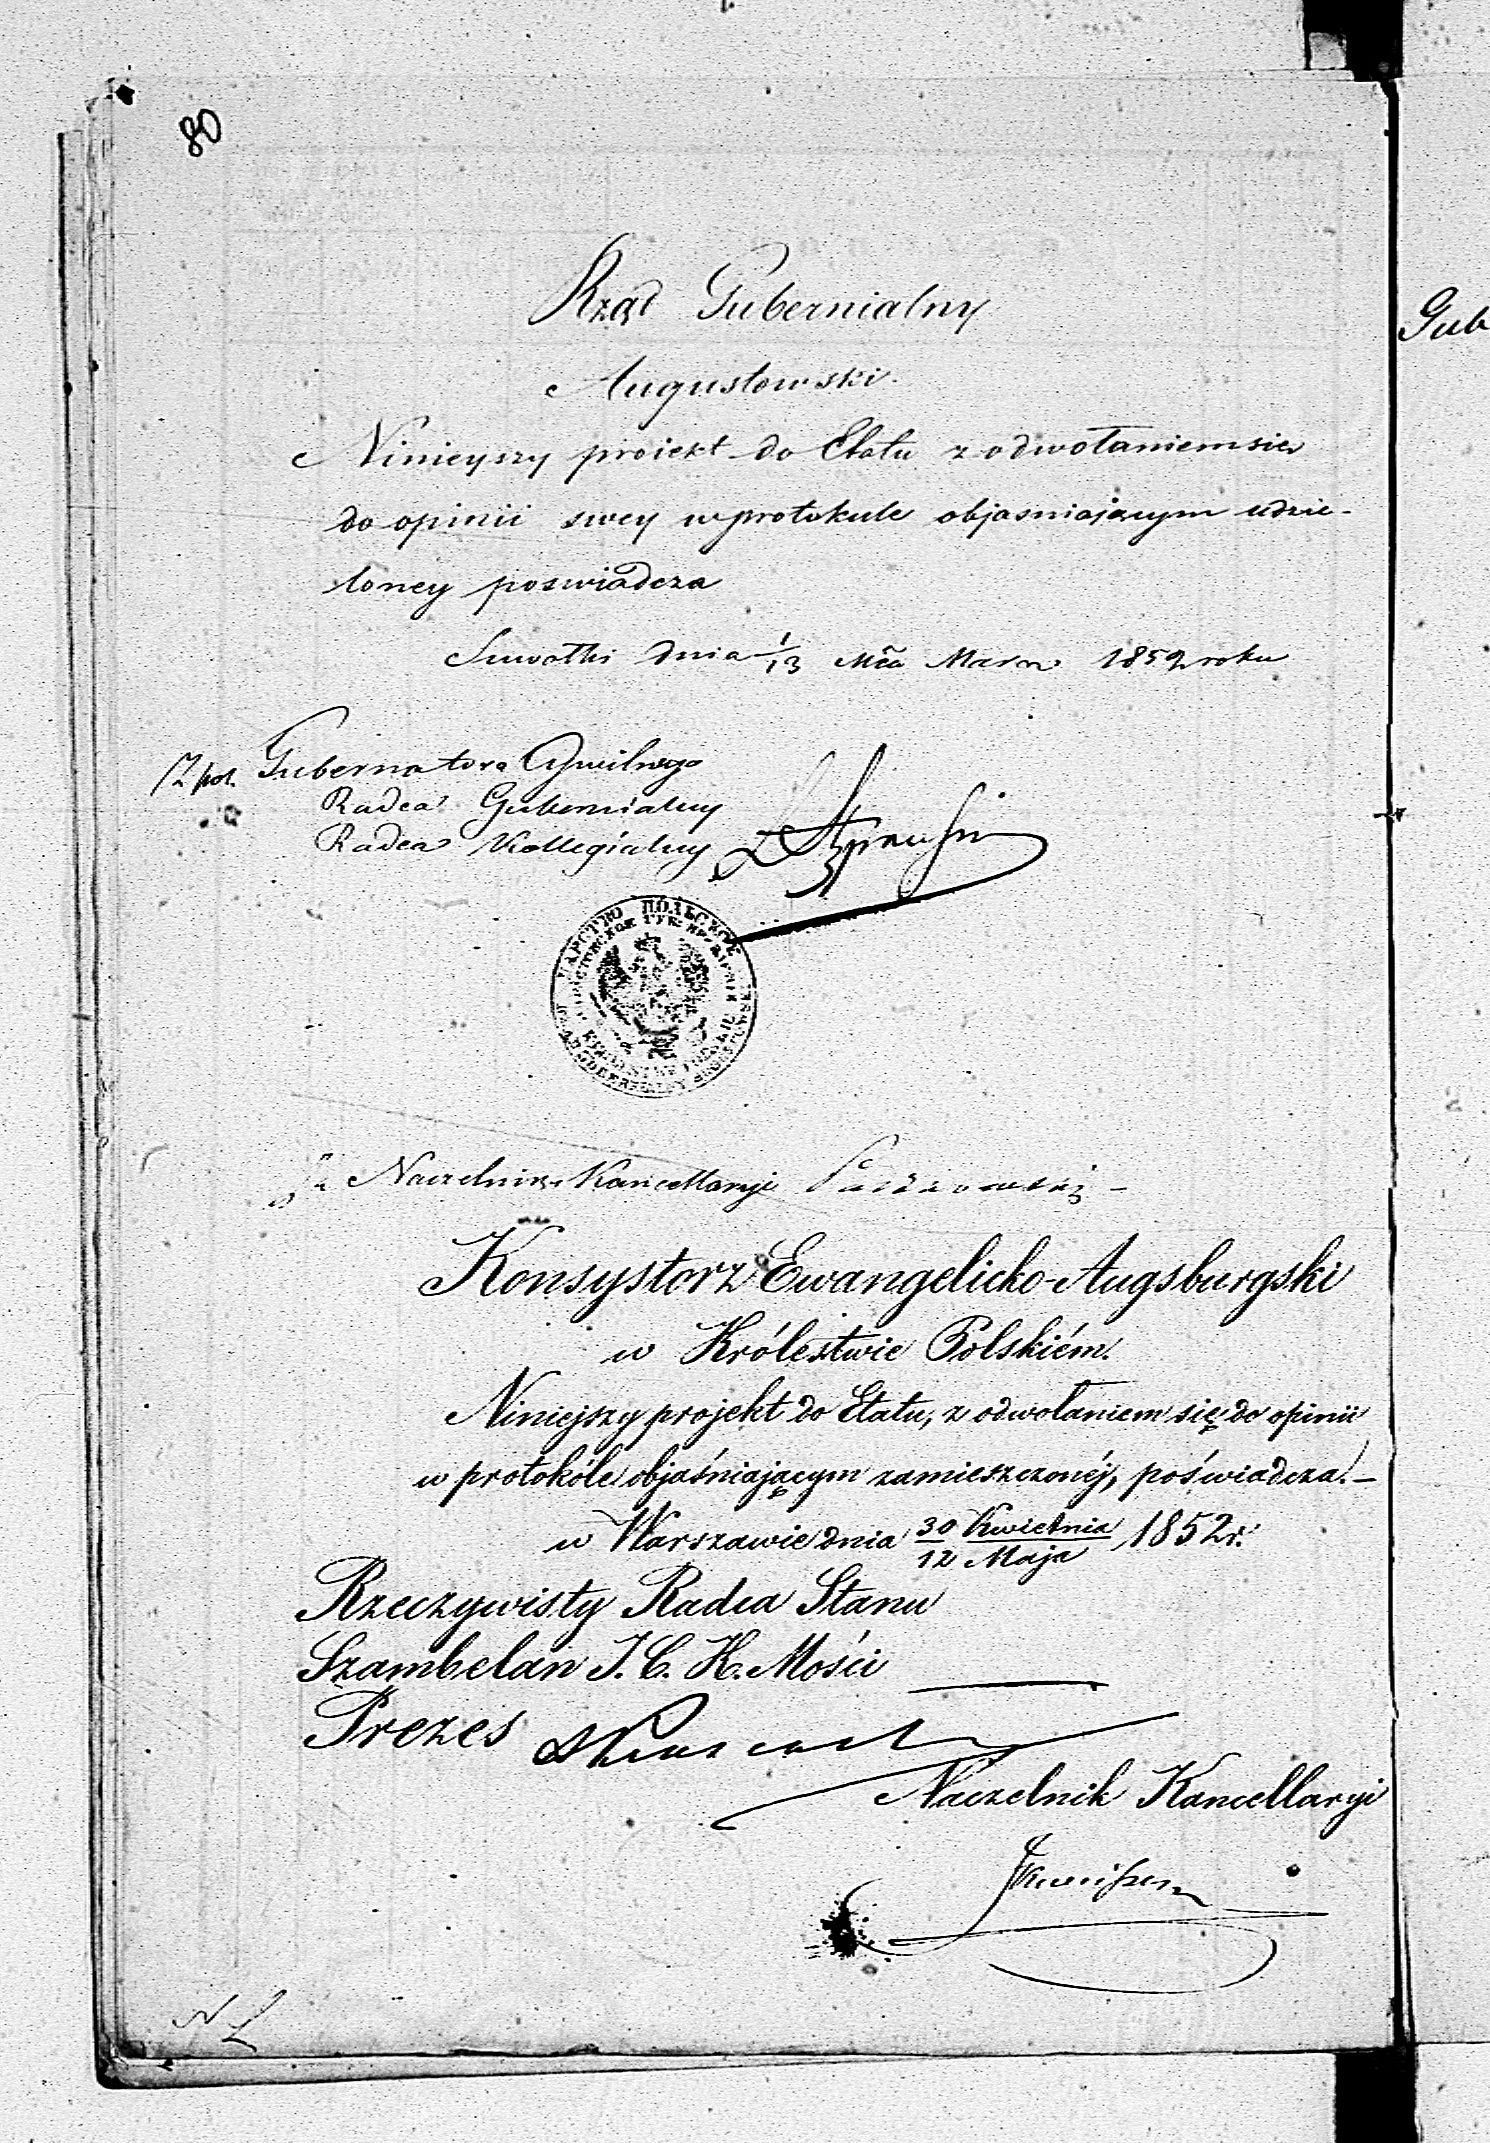 80
Rząd Gubernialny
Augustowski.
Ninieyszy proiekt do Etatu z odwołaniem sie
do opinii swey w protokule objasniającym udzie-
loney poswiadcza
Suwałki dnia 1/13 Mca Marca 1852 roku
Gubernatora Cywilnego
Radca Gubernialny
Radca Kollegialny
ЦАРСТВО ПОЛЬСКОЕ
Naczelnik Kancellaryi
Konsystorz Ewangelicko-Augsburgski
w Królestwie Polskiém.
Niniejszy projekt do Etatu, z odwołaniem się do opinii
w protokóle objaśniającym zamieszczonéj, poświadcza.—
w Warszawie dnia 30 Kwietnia/12 Maja 1852 r.
Rzeczywisty Radca Stanu
Szambelan J. C. K. Mości
Prezes
Naczelnik Kancellaryi
Gub